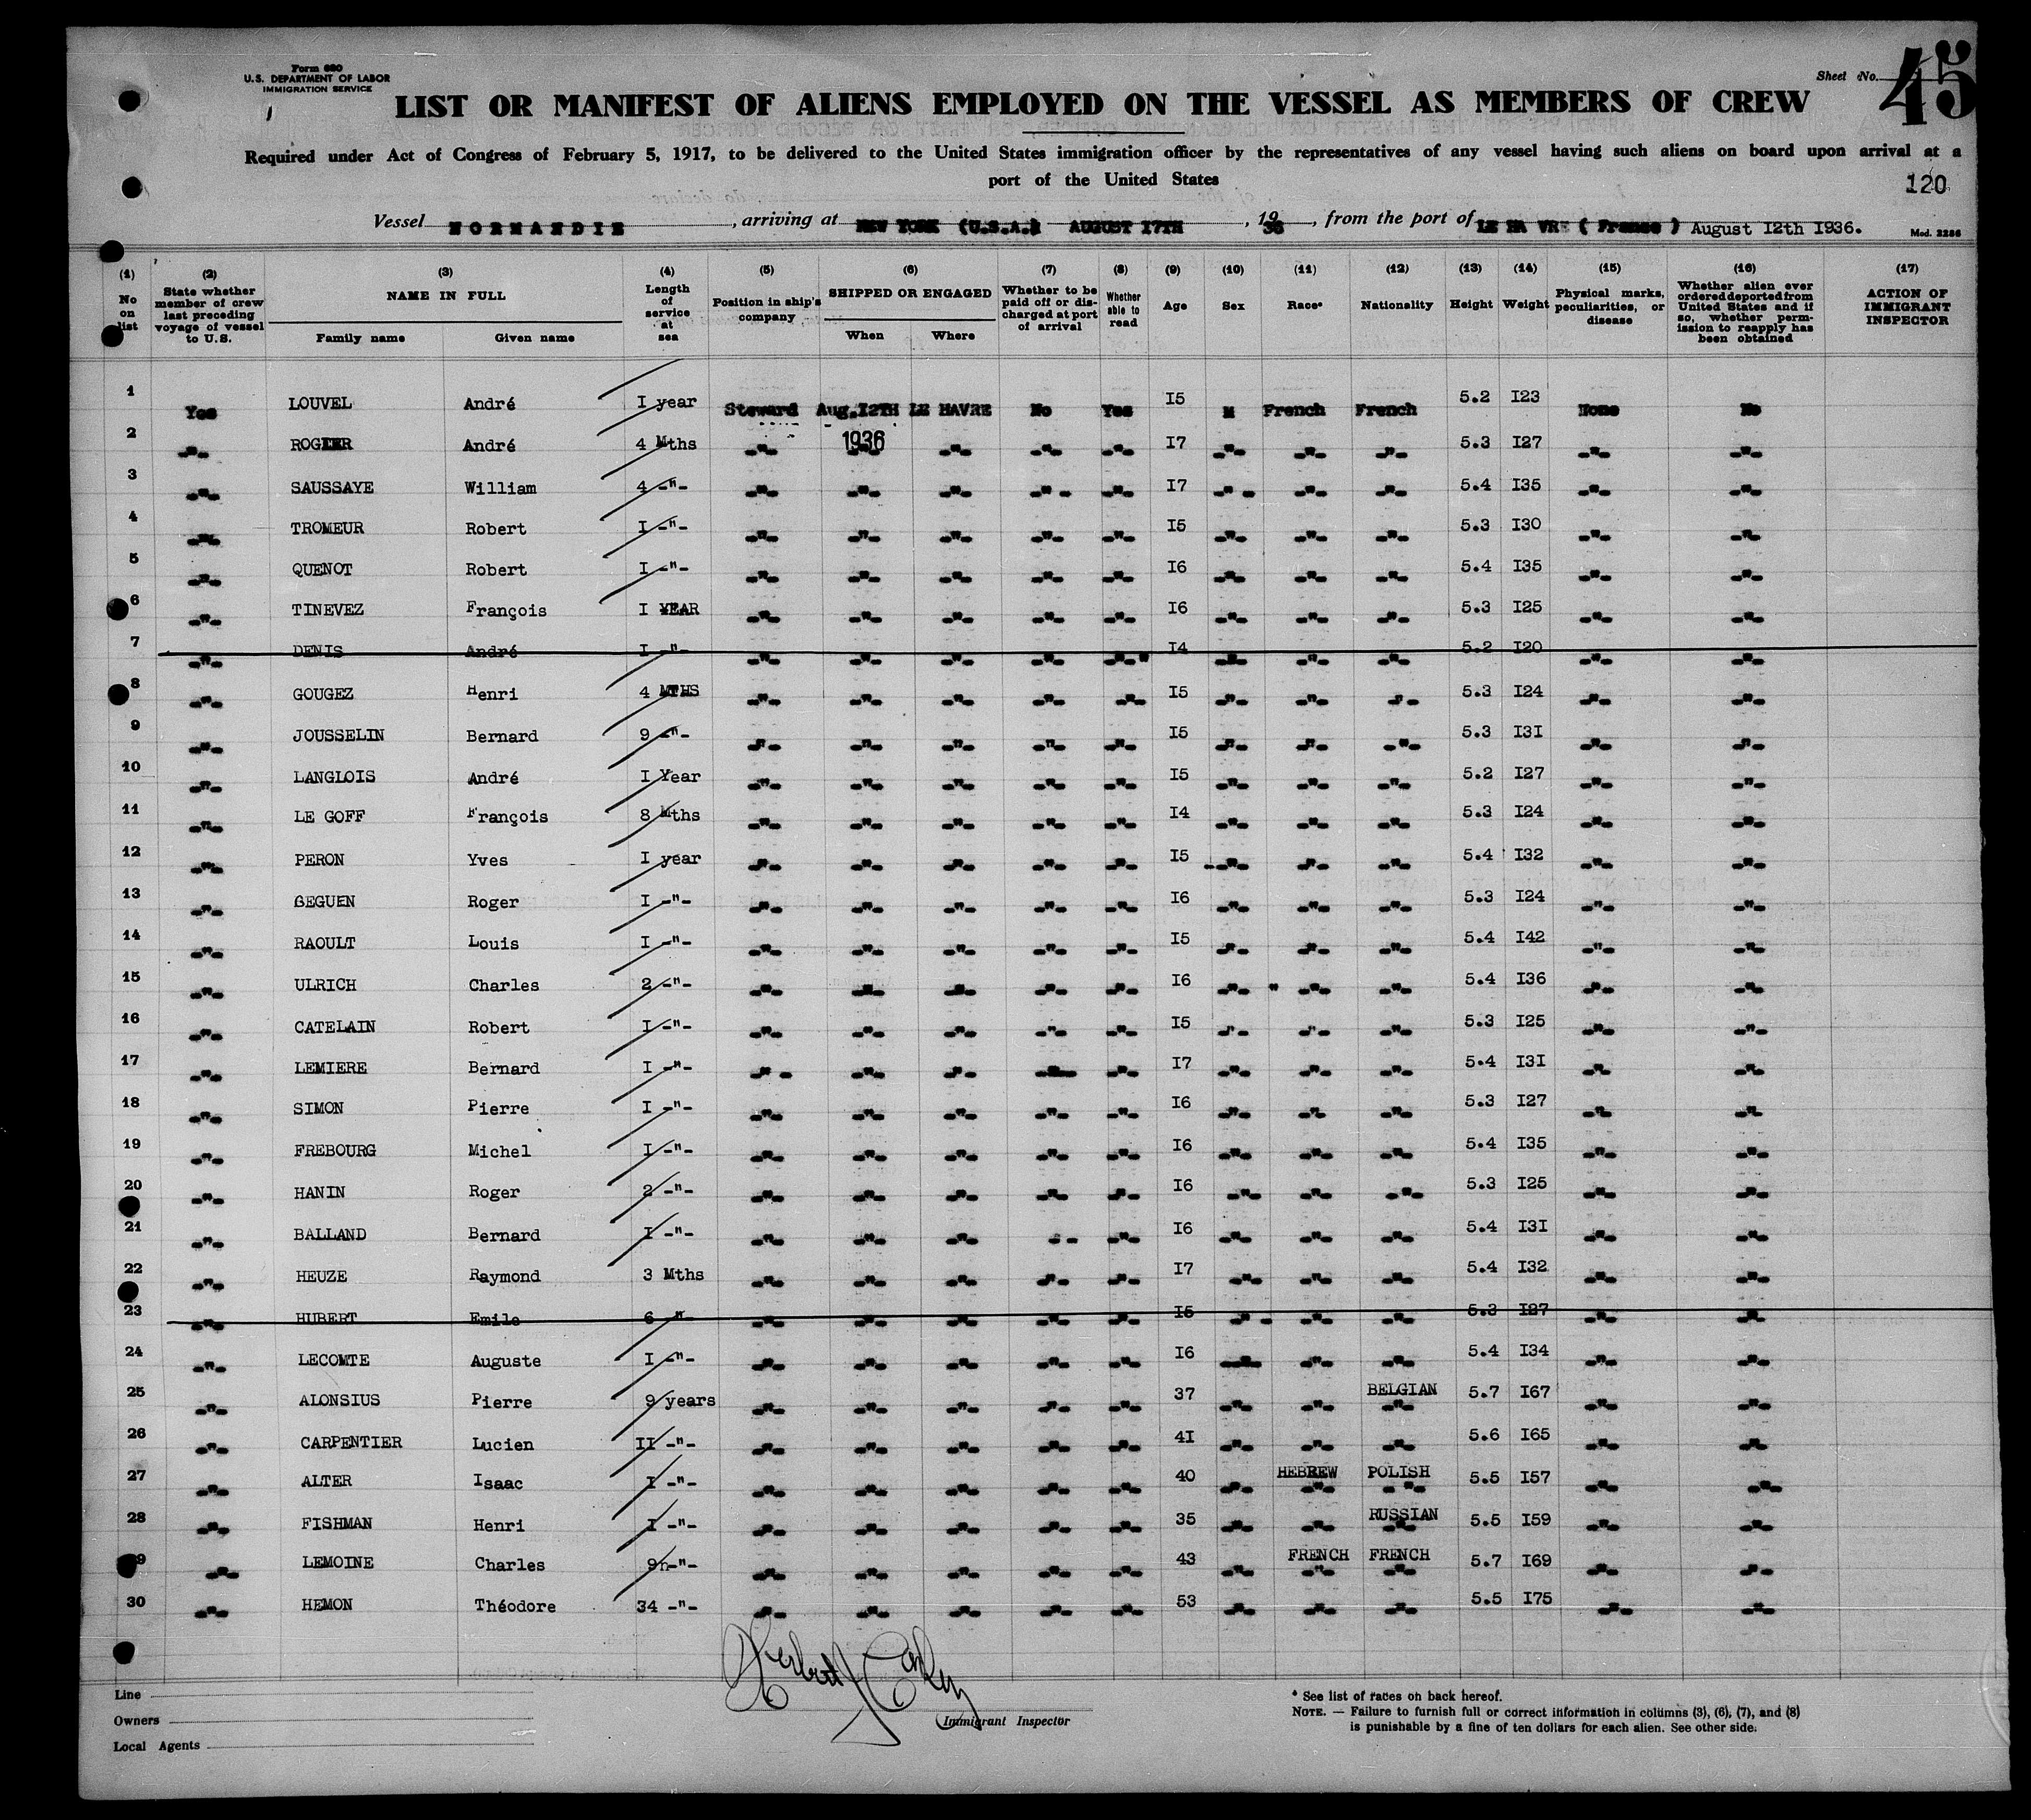 Form 680
U.S. DEPARTMENT OF LABOR
IMMIGRATION SERVICE
Sheet No. 45
LIST OR MANIFEST OF ALIENS EMPLOYED ON THE VESSEL AS MEMBERS OF CREW
Required under Act of Congress of February 5, 1917, to be delivered to the United States immigration officer by the representatives of any vessel having such aliens on board upon arrival at a
port of the United States
120
Vessel NORMANDIE, arriving at NEW YORK (U.S.A.) AUGUST 17TH, 1936, from the port of LE HAVRE ( France ) August I2th I936.
Mod. 2286
(1) No on list (2) State whether member of crew last preceding voyage of vessel to U.S. (3) NAME IN FULL Family name Given name (4) Length of service at sea (5) Position in ship's company (6) SHIPPED OR ENGAGED When Where (7) Whether to be paid off or discharged at port of arrival (8) Whether able to read (9) Age (10) Sex (11) Race* (12) Nationality (13) Height (14) Weight (15) Physical marks, peculiarities, or disease (16) Whether alien ever ordered deported from United States and if so, whether permission to reapply has been obtained (17) ACTION OF IMMIGRANT INSPECTOR
1 Yes LOUVEL André I year Steward Aug.I2TH LE HAVRE No Yes I5 M French French 5.2 I23 None No
2 -"- ROGIER André 4 Mths -"- 1936 -"- -"- -"- -"- I7 -"- -"- -"- 5.3 I27 -"- -"-
3 -"- SAUSSAYE William 4 -"- -"- -"- -"- -"- -"- I7 -"- -"- -"- 5.4 I35 -"- -"-
4 -"- TROMEUR Robert I -"- -"- -"- -"- -"- -"- I5 -"- -"- -"- 5.3 I30 -"- -"-
5 -"- QUENOT Robert I -"- -"- -"- -"- -"- -"- I6 -"- -"- -"- 5.4 I35 -"- -"-
6 -"- TINEVEZ François I YEAR -"- -"- -"- -"- -"- I6 -"- -"- -"- 5.3 I25 -"- -"-
7 -"- DENIS André I -"- -"- -"- -"- -"- -"- I4 -"- -"- -"- 5.2 I20 -"- -"-
8 -"- GOUGEZ Henri 4 MTHS -"- -"- -"- -"- -"- I5 -"- -"- -"- 5.3 I24 -"- -"-
9 -"- JOUSSELIN Bernard 9 -"- -"- -"- -"- -"- -"- I5 -"- -"- -"- 5.3 I3I -"- -"-
10 -"- LANGLOIS André I Year -"- -"- -"- -"- -"- I5 -"- -"- -"- 5.2 I27 -"- -"-
11 -"- LE GOFF François 8 Mths -"- -"- -"- -"- -"- I4 -"- -"- -"- 5.3 I24 -"- -"-
12 -"- PERON Yves I year -"- -"- -"- -"- -"- I5 -"- -"- -"- 5.4 I32 -"- -"-
13 -"- BEGUEN Roger I -"- -"- -"- -"- -"- -"- I6 -"- -"- -"- 5.3 I24 -"- -"-
14 -"- RAOULT Louis I -"- -"- -"- -"- -"- -"- I5 -"- -"- -"- 5.4 I42 -"- -"-
15 -"- ULRICH Charles 2 -"- -"- -"- -"- -"- -"- I6 -"- -"- -"- 5.4 I36 -"- -"-
16 -"- CATELAIN Robert I -"- -"- -"- -"- -"- -"- I5 -"- -"- -"- 5.3 I25 -"- -"-
17 -"- LEMIERE Bernard I -"- -"- -"- -"- -"- -"- I7 -"- -"- -"- 5.4 I3I -"- -"-
18 -"- SIMON Pierre I -"- -"- -"- -"- -"- -"- I6 -"- -"- -"- 5.3 I27 -"- -"-
19 -"- FREBOURG Michel I -"- -"- -"- -"- -"- -"- I6 -"- -"- -"- 5.4 I35 -"- -"-
20 -"- HANIN Roger 2 -"- -"- -"- -"- -"- -"- I6 -"- -"- -"- 5.3 I25 -"- -"-
21 -"- BALLAND Bernard I -"- -"- -"- -"- -"- -"- I6 -"- -"- -"- 5.4 I3I -"- -"-
22 -"- HEUZE Raymond 3 Mths -"- -"- -"- -"- -"- I7 -"- -"- -"- 5.4 I32 -"- -"-
23 -"- HUBERT Emile 6 -"- -"- -"- -"- -"- -"- I5 -"- -"- -"- 5.3 I27 -"- -"-
24 -"- LECOMTE Auguste I -"- -"- -"- -"- -"- -"- I6 -"- -"- -"- 5.4 I34 -"- -"-
25 -"- ALONSIUS Pierre 9 years -"- -"- -"- -"- -"- 37 -"- -"- BELGIAN 5.7 I67 -"- -"-
26 -"- CARPENTIER Lucien II -"- -"- -"- -"- -"- -"- 4I -"- -"- -"- 5.6 I65 -"- -"-
27 -"- ALTER Isaac I -"- -"- -"- -"- -"- -"- 40 -"- HEBREW POLISH 5.5 I57 -"- -"-
28 -"- FISHMAN Henri I -"- -"- -"- -"- -"- -"- 35 -"- -"- RUSSIAN 5.5 I59 -"- -"-
29 -"- LEMOINE Charles 9 -"- -"- -"- -"- -"- -"- 43 -"- FRENCH FRENCH 5.7 I69 -"- -"-
30 -"- HEMON Théodore 34 -"- -"- -"- -"- -"- -"- 53 -"- -"- -"- 5.5 I75 -"- -"-
Line
Owners
Local Agents
Immigrant Inspector
* See list of races on back hereof.
NOTE. — Failure to furnish full or correct information in columns (3), (6), (7), and (8)
is punishable by a fine of ten dollars for each alien. See other side.